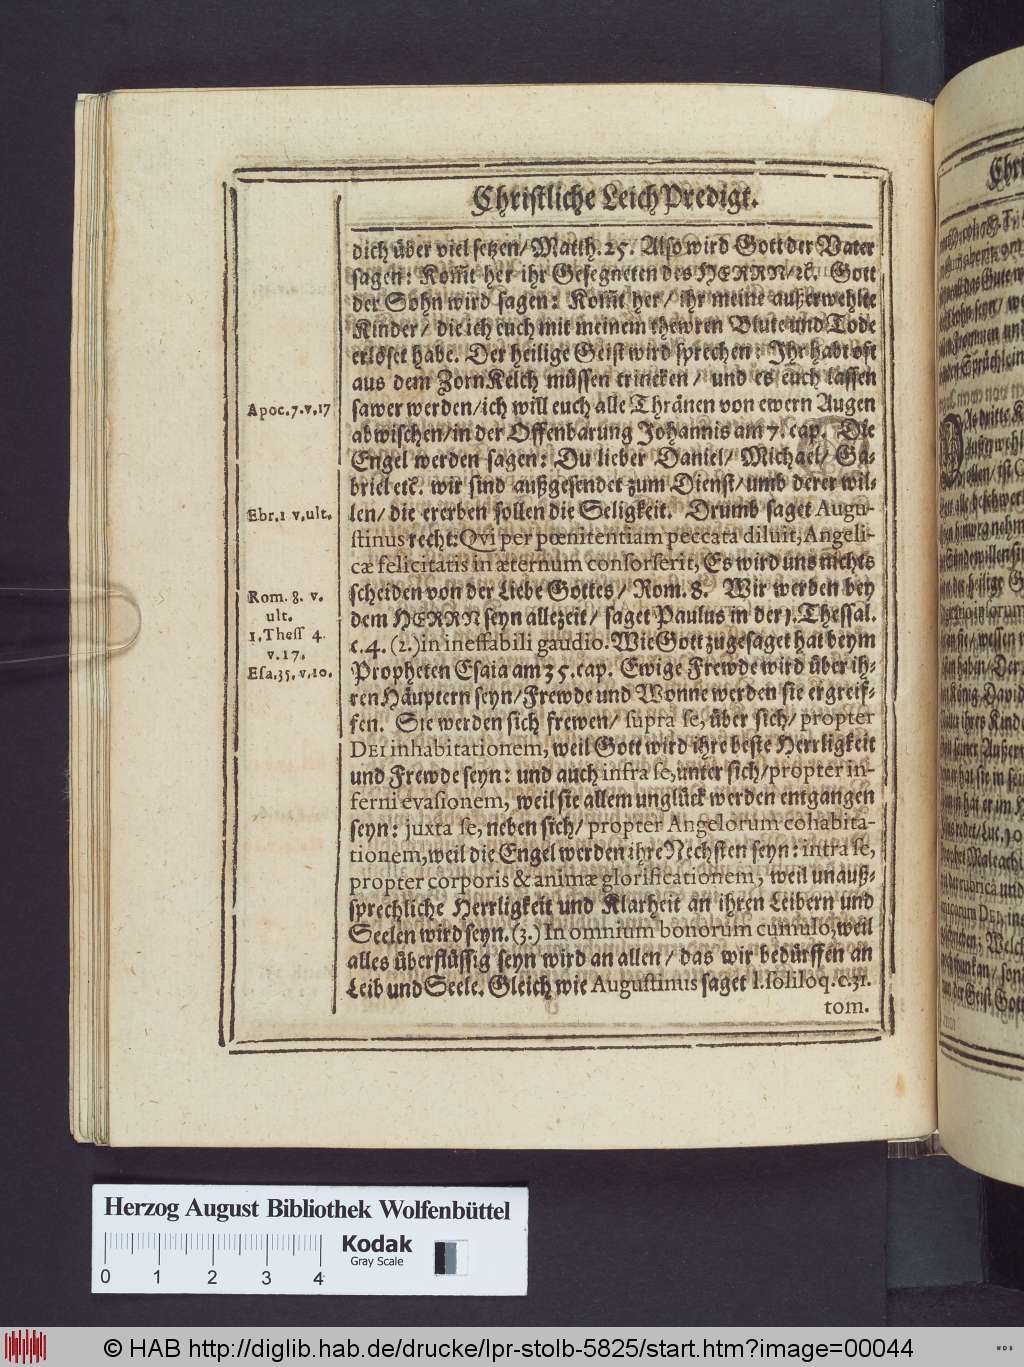 Christliche LeichPredigt.
dich über viel setzen/ Matth. 25. Also wird Gott der Vater
sagen: Kom̃t her ihr Gesegneten des HERRN/ꝛc. Gott
der Sohn wird sagen: Kom̃t her/ ihr meine außerwehlte
Kinder/ die ich euch mit meinem thewren Blute und Tode
erlöset habe. Der heilige Geist wird sprechen: Ihr habt oft
aus dem ZornKelch müssen trincken/ und es euch lassen
sawer werden/ich will euch alle Thränen von ewern Augen
abwischen/in der Offenbarung Johannis am 7. cap. Die
Engel werden sagen: Du lieber Daniel/ Michael/ Ga-
briel etc. wir sind außgesendet zum Dienst/umb derer wil-
len/ die ererben sollen die Seligkeit. Drumb saget Augu-
stinus recht: Qvi per pœnitentiam peccata diluit, Angeli-
cæ felicitatis in æternum consors erit, Es wird uns nichts
scheiden von der Liebe Gottes/ Rom. 8. Wir werden bey
dem HERRN seyn allezeit/ saget Paulus in der 1. Thessal.
c. 4. (2.) in ineffabili gaudio. Wie Gott zugesaget hat beym
Propheten Esaia am 35. cap. Ewige Frewde wird über ih-
ren Häuptern seyn/ Frewde und Wonne werden sie ergreif-
fen. Sie werden sich frewen/ supra se, über sich/ propter
DEI inhabitationem, weil Gott wird ihre beste Herrligkeit
und Frewde seyn: und auch infra se, unter sich/propter in-
ferni evasionem, weil sie allem unglück werden entgangen
seyn: juxta se, neben sich/ propter Angelorum cohabita-
tionem, weil die Engel werden ihre Nechsten seyn: intra se,
propter corporis & animæ glorificationem, weil unauß-
sprechliche Herrligkeit und Klarheit an ihren Leibern und
Seelen wird seyn. (3.) In omnium bonorum cumulo, weil
alles überflüssig seyn wird an allen/ das wir bedürffen an
Leib und Seele. Gleich wie Augustinus saget l. soliloq. c. 31.
tom.
Apoc. 7. v. 17
Ebr. 1 v. ult.
Rom. 8. v.
ult.
1. Thess 4.
v. 17.
Esa. 35. v. 10.
Herzog August Bibliothek Wolfenbüttel
Kodak
Gray Scale
0 1 2 3 4
© HAB http://diglib.hab.de/drucke/lpr-stolb-5825/start.htm?image=00044